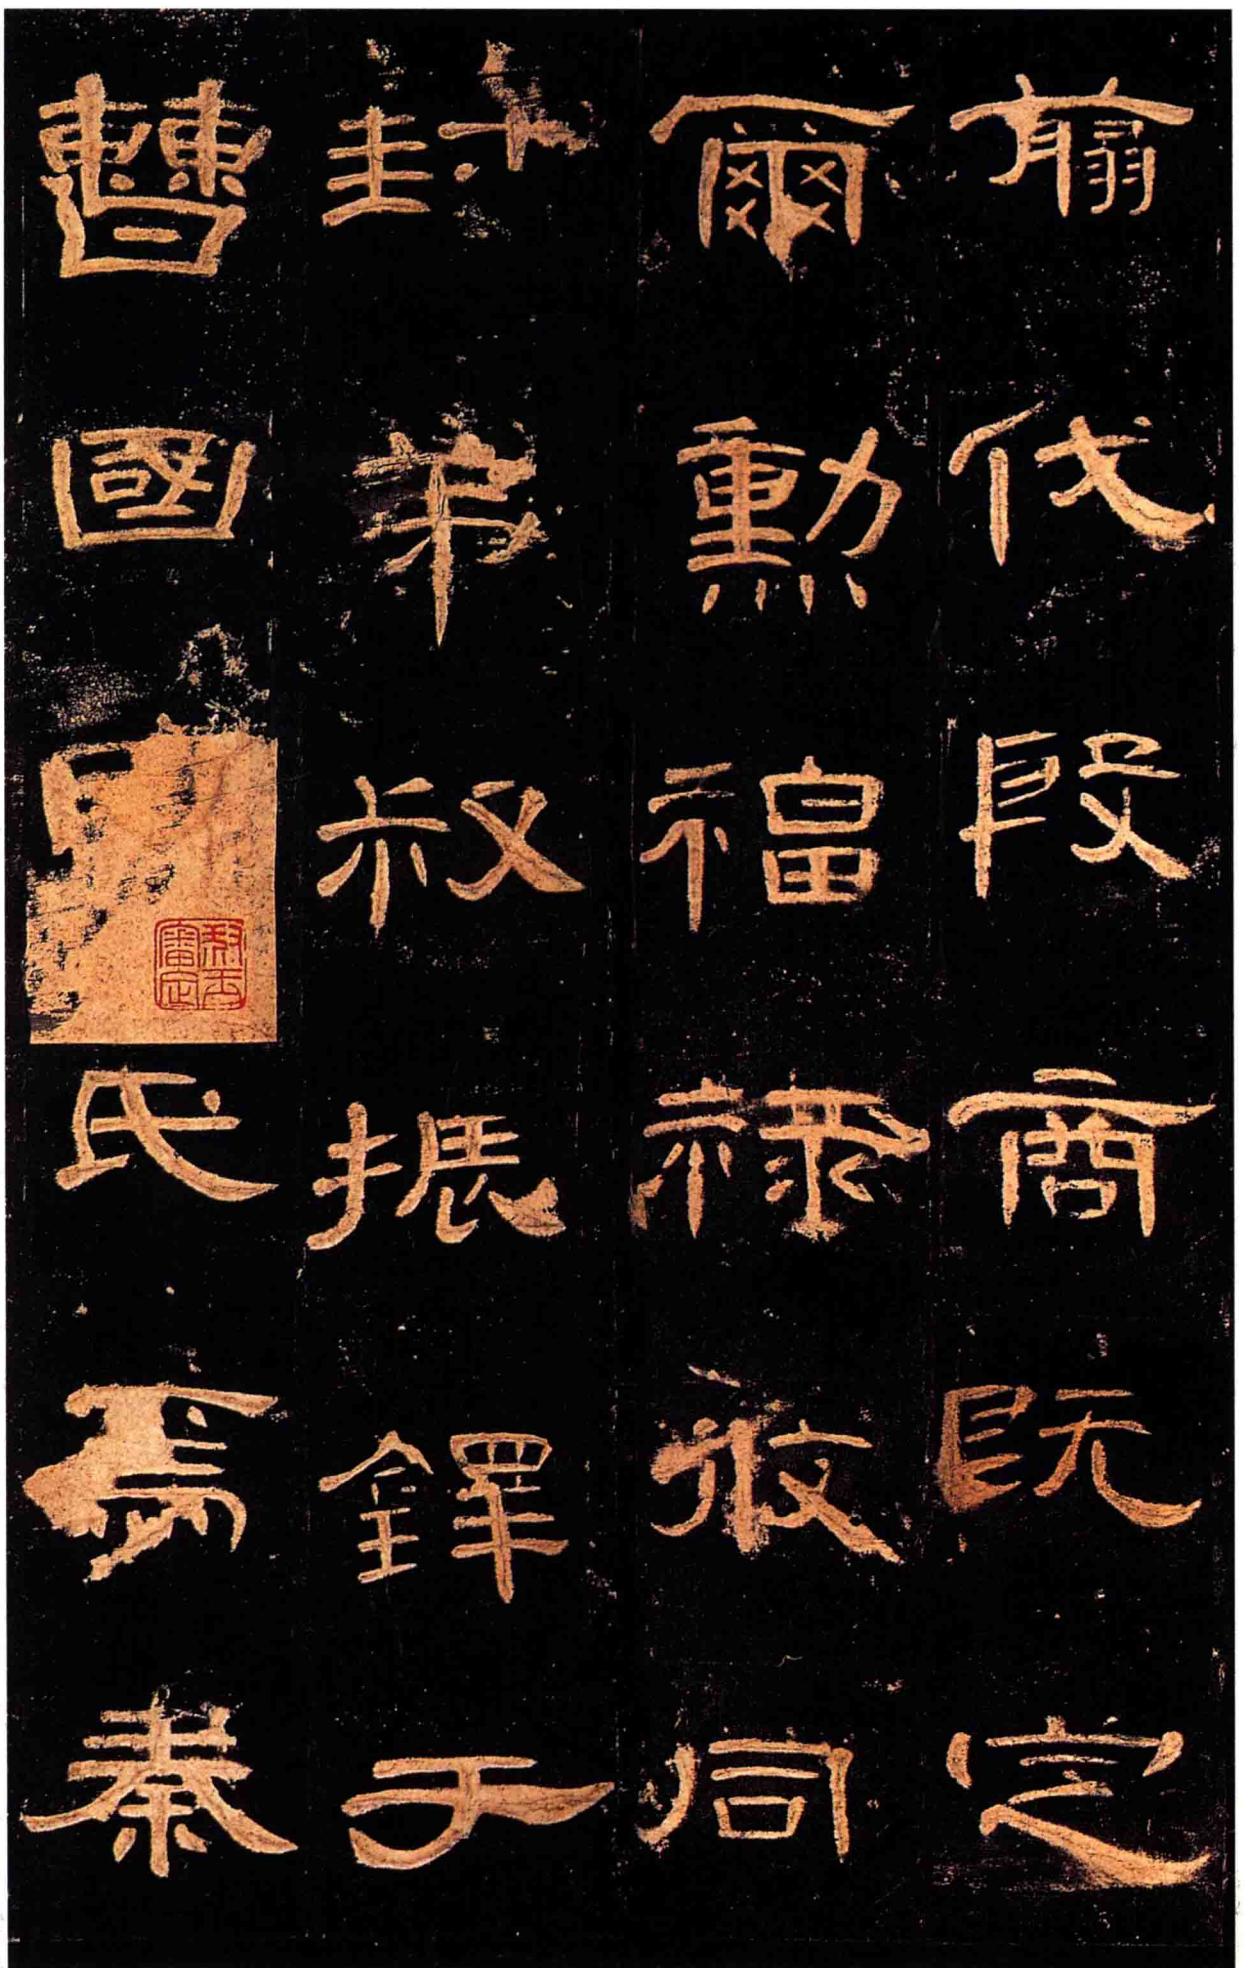 翦伐殷商既定
爾勳福祿攸同
封弟叔振鐸于
曹國氏焉秦